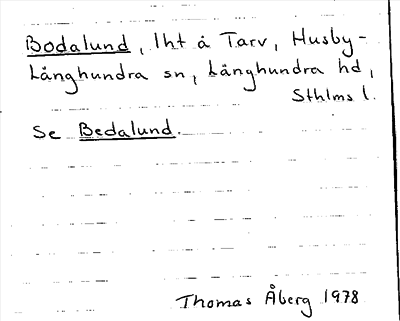 Bodalund, lht å Tarv, Husby-
Långhundra sn, Långhundra hd,
Sthlms l.
Se Bedalund.
Thomas Åberg 1978